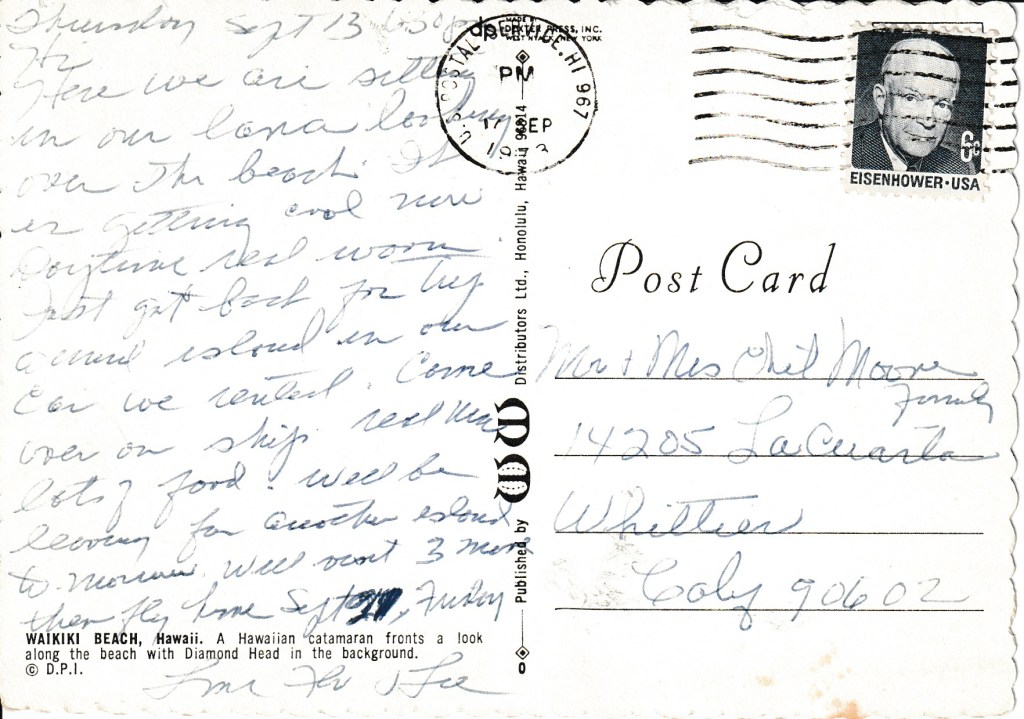 Thursday Sept 13 6:30 PM
Hi
Here we are sitting
in our lania looking
over the beach. It
is getting cool now
Daytime real worm.
Just got back for trip
around island in our
car we rented. Come
over on ship. real nice
lots of food. Will be
leaving for another island
to morrow. Will visit 3 more
then fly home Sept 21, Friday
WAIKIKI BEACH, Hawaii. A Hawaiian catamaran fronts a look
along the beach with Diamond Head in the background.
© D.P.I.
Love Flo &
MADE BY
dp DEXTER PRESS, INC.
WEST NYACK, NEW YORK
Published by Distributors Ltd., Honolulu, Hawaii 96814
U.S. POSTAL HI 967
PM
17 SEP
EISENHOWER·USA
6c
Post Card
Mr + Mrs Moore
Family
14205 La Cuarta
Whittier
Calif 90602